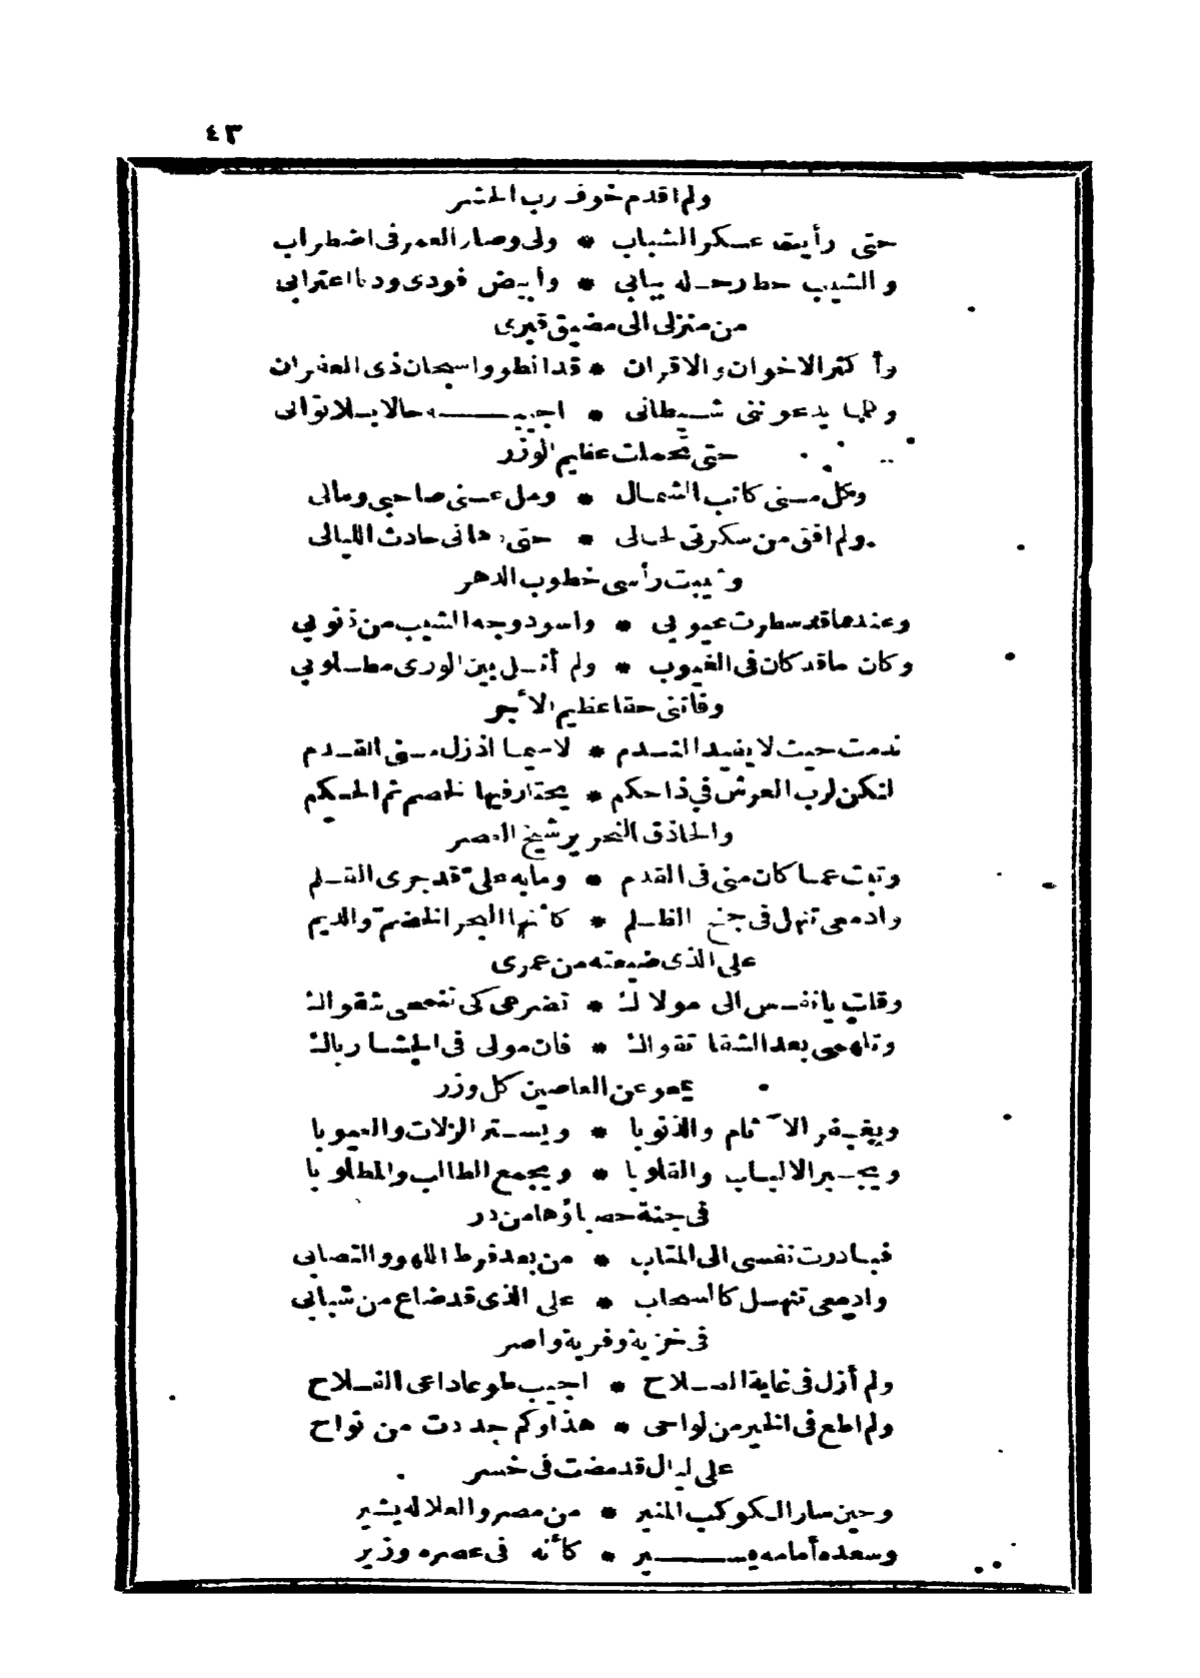 ٤٣
ولم اقدم خوف رب الحشر
حتى رأيت عسكر الشباب * ولى وصار العمر فى اضطراب
والشيب حط رحله ببابى * وأبيض فودى ودنا اعترابى
من منزلى الى مضيق قبرى
وأكثر الاخوان والاقران * قد انطووا سبحان ذى الغفران
وطالما يدعوننى شيطانى * اجيبه حالا بلا توانى
حتى تحملت عظيم الوزر
وكل منى كاتب الشمال * ومل عنى صاحبى ومالى
ولم افق من سكرتى لحالى * حتى دهانى حادث الليالى
وشيبت رأسى خطوب الدهر
وعندها قد سطرت عيوبى * واسود وجه الشيب من ذنوبى
وكان ما قد كان فى الغيوب * ولم أنل بين الورى مطلوبى
وفاتنى حقا عظيم الأجر
ندمت حيث لا يفيد الندم * لا سيما اذ زل منى القدم
لكن لرب العرش فى ذا حكم * يحتار فيها الخصم ثم الحكم
والحاذق النحرير شيخ العصر
وتبت عما كان منى فى القدم * وما به على قد جرى القلم
وادمعى تنهل فى جنح الظلم * كأنها البحر الخضم والديم
على الذى ضيعته من عمرى
وقلت يا نفس الى مولاك * تضرعى كى تنمحى شقواك
وتلهمى بعد الشقا تقواك * فان مولى فى الحشا رباك
يمحو عن العاصين كل وزر
ويغفر الآثام والذنوبا * ويستر الزلات والعيوبا
ويجبر الالباب والقلوبا * ويجمع الطالب والمطلوبا
فى جنة حصباؤها من در
فبادرت نفسى الى المتاب * من بعد فرط اللهو والتصابى
وادمعى تنهل كالسحاب * على الذى قد ضاع من شبابى
فى خزية وفرية واصر
ولم أزل فى غاية الصلاح * اجيب طوعا داعى الفلاح
ولم اطع فى الخير من لواحى * هذا وكم جددت من نواح
على ليال قد مضت فى خسر
وحين سار الكوكب المنير * من مصر والعلا له يشير
وسعده أمامه يسير * كأنه فى عصره وزير